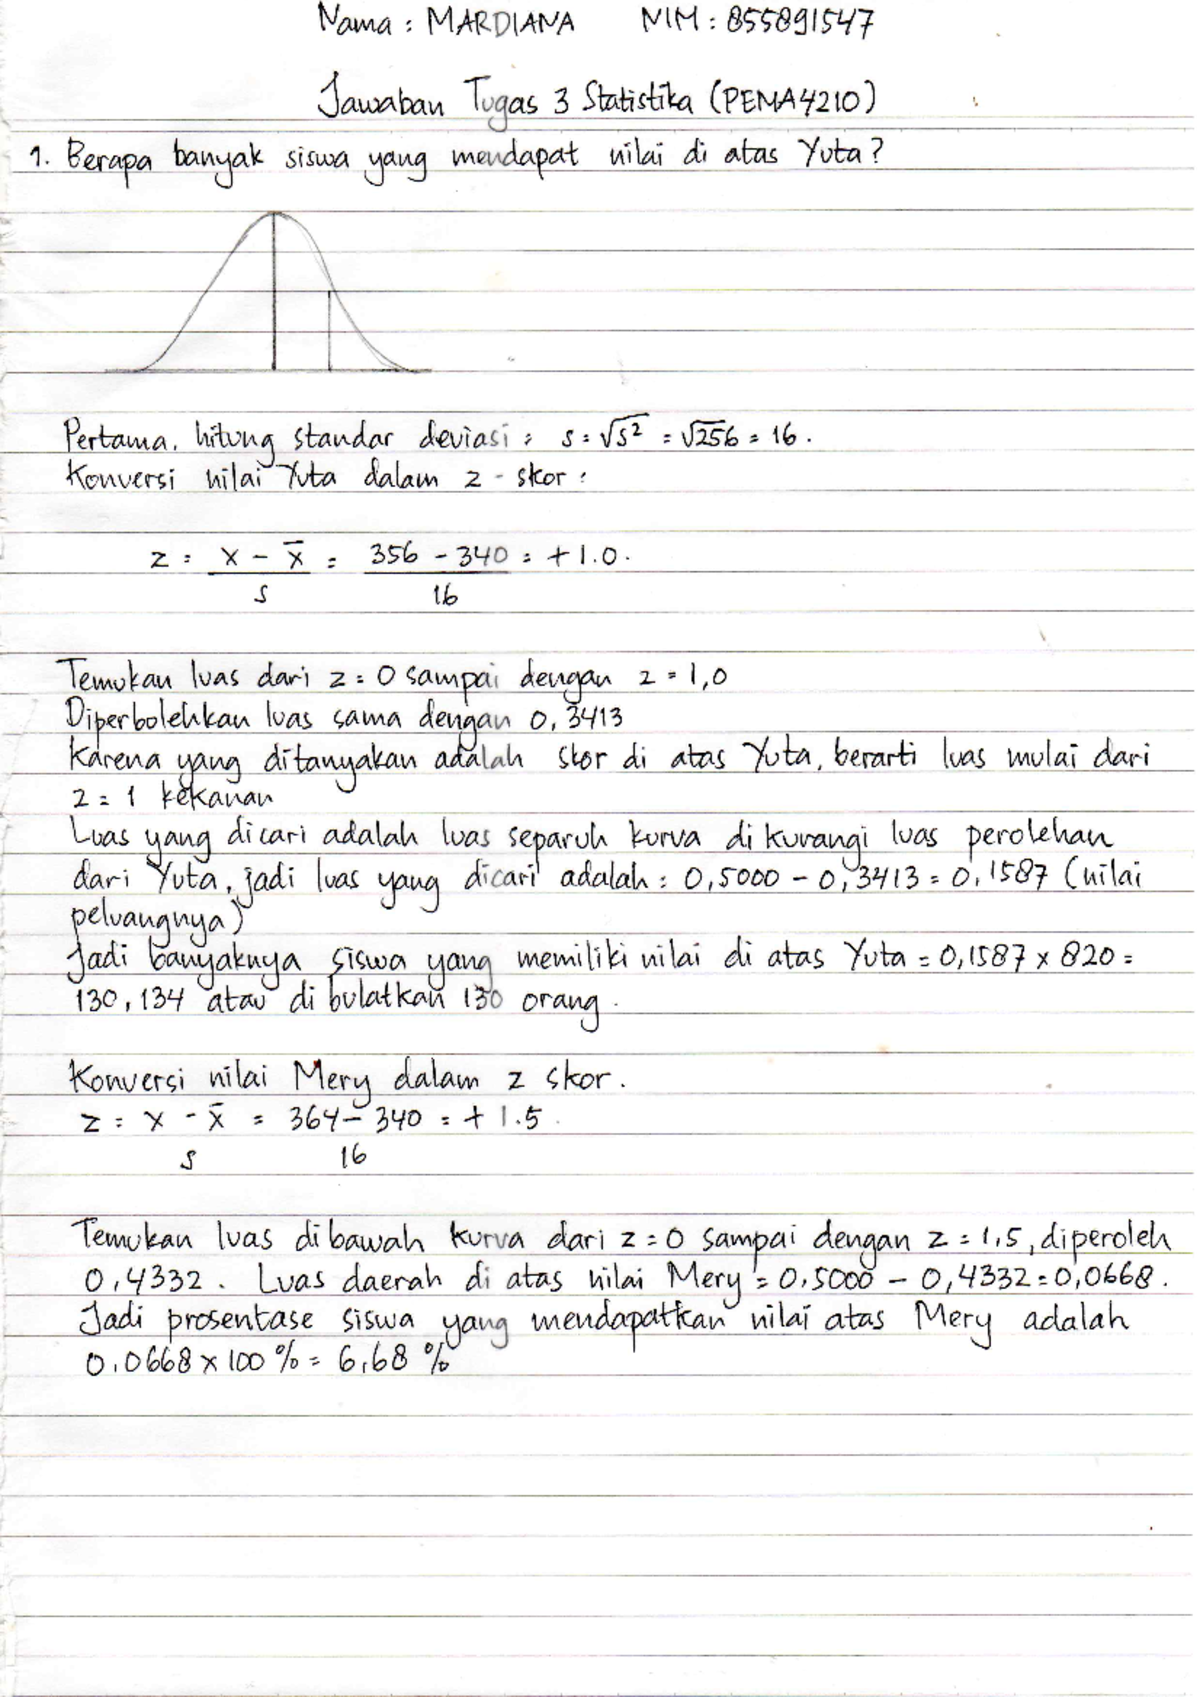 Nama : MARDIANA NIM : 855891547
Jawaban Tugas 3 Statistika (PEMA4210)
1. Berapa banyak siswa yang mendapat nilai di atas Yuta?
Pertama, hitung standar deviasi : s = √s² = √256 = 16.
Konversi nilai Yuta dalam z - skor :
z = x - x̄ = 356 - 340 = + 1.0.
s 16
Temukan luas dari z = 0 sampai dengan z = 1,0
Diperbolehkan luas sama dengan 0,3413
Karena yang ditanyakan adalah skor di atas Yuta, berarti luas mulai dari
z = 1 kekanan
Luas yang dicari adalah luas separuh kurva di kurangi luas perolehan
dari Yuta, jadi luas yang dicari adalah : 0,5000 - 0,3413 = 0,1587 (nilai
peluangnya)
Jadi banyaknya siswa yang memiliki nilai di atas Yuta = 0,1587 x 820 =
130,134 atau di bulatkan 130 orang.
Konversi nilai Mery dalam z skor.
z = x - x̄ = 364 - 340 = + 1.5
s 16
Temukan luas dibawah kurva dari z = 0 sampai dengan z = 1,5, diperoleh
0,4332. Luas daerah di atas nilai Mery = 0,5000 - 0,4332 = 0,0668.
Jadi prosentase siswa yang mendapatkan nilai atas Mery adalah
0,0668 x 100 % = 6,68 %